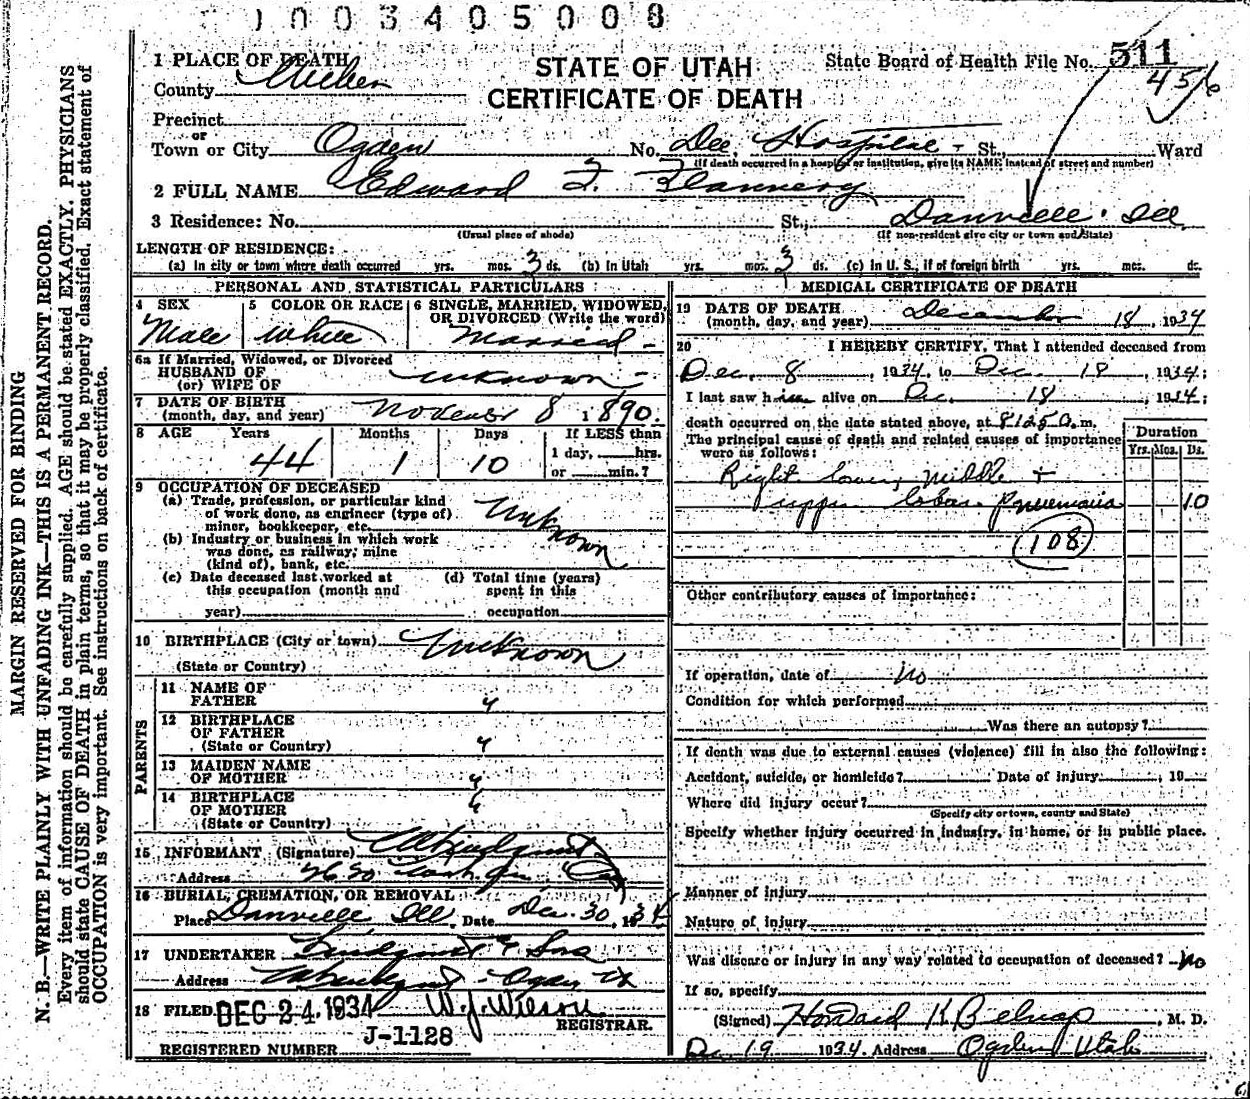 1003405008
1 PLACE OF DEATH
STATE OF UTAH
CERTIFICATE OF DEATH
State Board of Health File No. 511
456
County Weber
Precinct
or
Town or City Ogden No. Dee Hospital St., Ward
(If death occurred in a hospital or institution, give its NAME instead of street and number)
2 FULL NAME Edward F. Flannery
3 Residence: No. St., Danville Ill
(Usual place of abode) (If non-resident give city or town and State)
LENGTH OF RESIDENCE:
(a) In city or town where death occurred yrs. mos. 3 ds. (b) In Utah yrs. mos. 3 ds. (c) In U. S., if of foreign birth yrs. mos. ds.
PERSONAL AND STATISTICAL PARTICULARS
4 SEX Male
5 COLOR OR RACE White
6 SINGLE, MARRIED, WIDOWED, OR DIVORCED (Write the word) Married
6a If Married, Widowed, or Divorced
HUSBAND OF
(or) WIFE OF unknown
7 DATE OF BIRTH
(month, day, and year) November 8 1890.
8 AGE Years Months Days If LESS than
44 1 10 1 day, hrs.
or min.?
9 OCCUPATION OF DECEASED
(a) Trade, profession, or particular kind
of work done, as engineer (type of)
miner, bookkeeper, etc.
Unknown
(b) Industry or business in which work
was done, as railway; mine
(kind of), bank, etc.
Unknown
(c) Date deceased last worked at
this occupation (month and
year)
(d) Total time (years)
spent in this
occupation
10 BIRTHPLACE (City or town) Unknown
(State or Country)
PARENTS
11 NAME OF
FATHER "
12 BIRTHPLACE
OF FATHER "
(State or Country)
13 MAIDEN NAME
OF MOTHER "
14 BIRTHPLACE
OF MOTHER "
(State or Country)
15 INFORMANT (Signature)
Address
16 BURIAL, CREMATION, OR REMOVAL
Place Danville Ill Date Dec. 30, 1934
17 UNDERTAKER Lindquist & Sons
Address Ogden Ut
18 FILED DEC 24 1934 W. J. Wilson
REGISTRAR.
REGISTERED NUMBER J-1128
MEDICAL CERTIFICATE OF DEATH
19 DATE OF DEATH
(month, day, and year) December 18, 1934
20 I HEREBY CERTIFY, That I attended deceased from
Dec. 8, 1934, to Dec. 18, 1934;
I last saw him alive on Dec. 18, 1934;
death occurred on the date stated above, at 8:25 a.m.
The principal cause of death and related causes of importance
were as follows:
Duration
Yrs. Mos. Ds.
Right lower, middle +
upper lobar pneumonia 10
108
Other contributory causes of importance:
If operation, date of No
Condition for which performed
Was there an autopsy?
If death was due to external causes (violence) fill in also the following:
Accident, suicide, or homicide? Date of injury , 19
Where did injury occur?
(Specify city or town, county and State)
Specify whether injury occurred in industry, in home, or in public place.
Manner of injury
Nature of injury
Was disease or injury in any way related to occupation of deceased? No
If so, specify
(Signed) Howard K Belnap, M. D.
Dec 19 1934 Address Ogden Utah
MARGIN RESERVED FOR BINDING
N. B.—WRITE PLAINLY WITH UNFADING INK—THIS IS A PERMANENT RECORD.
Every item of information should be carefully supplied. AGE should be stated EXACTLY. PHYSICIANS
should state CAUSE OF DEATH in plain terms, so that it may be properly classified. Exact statement of
OCCUPATION is very important. See instructions on back of certificate.